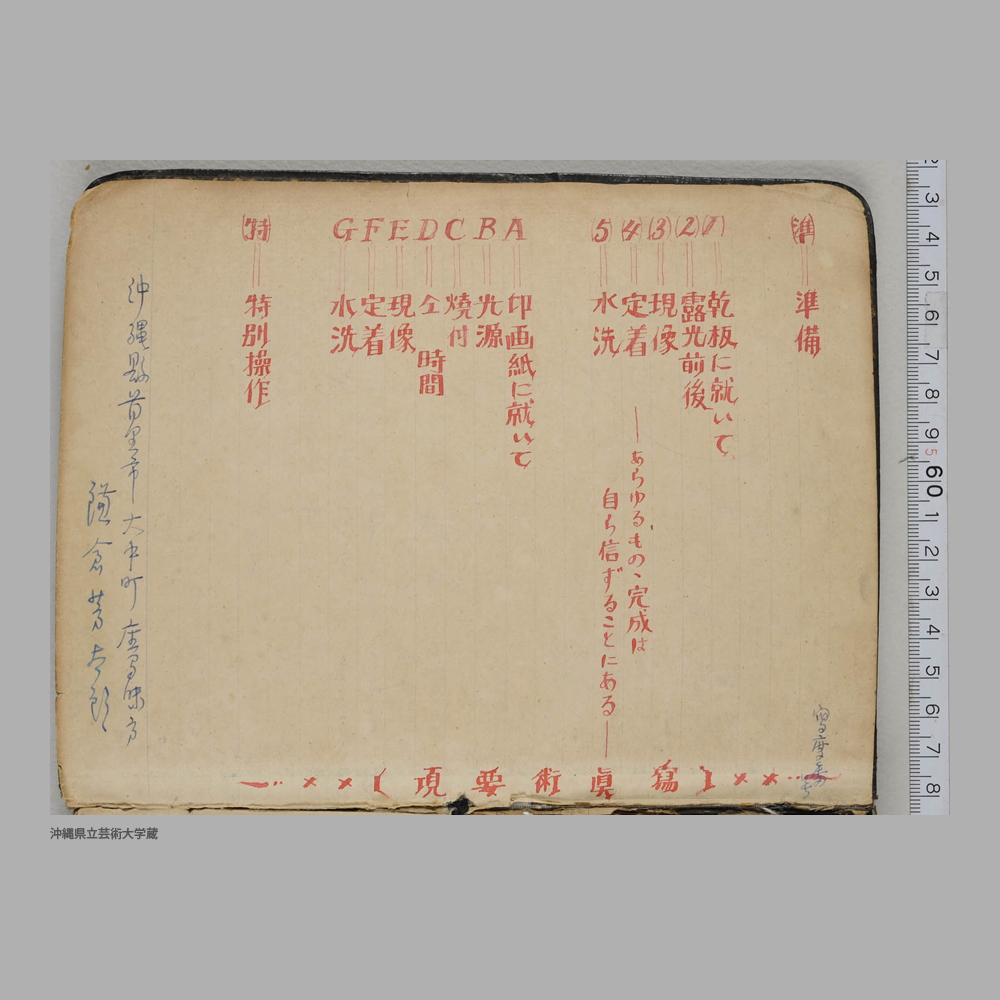 (準) 準備
(1) 乾板に就いて
(2) 露光前後
(3) 現像
(4) 定着
5) 水洗
―あらゆるもの、完成は
自ら信ずることにある―
A 印画紙に就いて
B 光源
C 燒付
D 仝 時間
E 現像
F 定着
G 水洗
(特) 特別操作
沖縄縣首里市大中町座間味方
鎌倉芳太郎
寫眞術要項
沖縄県立芸術大学蔵
2 3 4 5 6 7 8 9 5 60 1 2 3 4 5 6 7 8